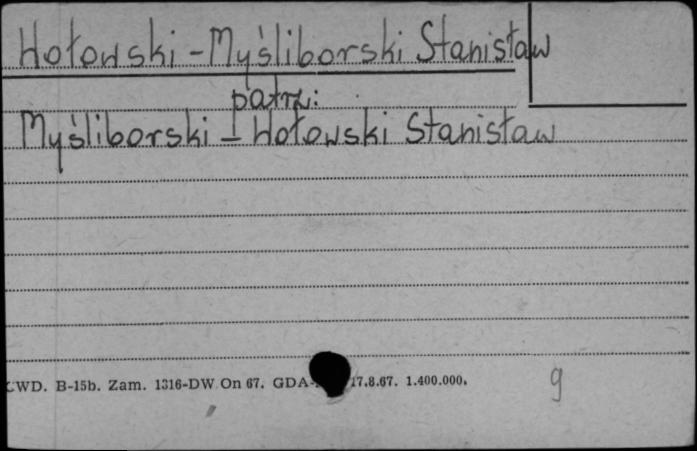 Hołowski - Myśliborski Stanisław
patrz:
Myśliborski - Hołowski Stanisław
CWD. B-15b. Zam. 1316-DW On 67. GDA- 17.8.67. 1.400.000.
9